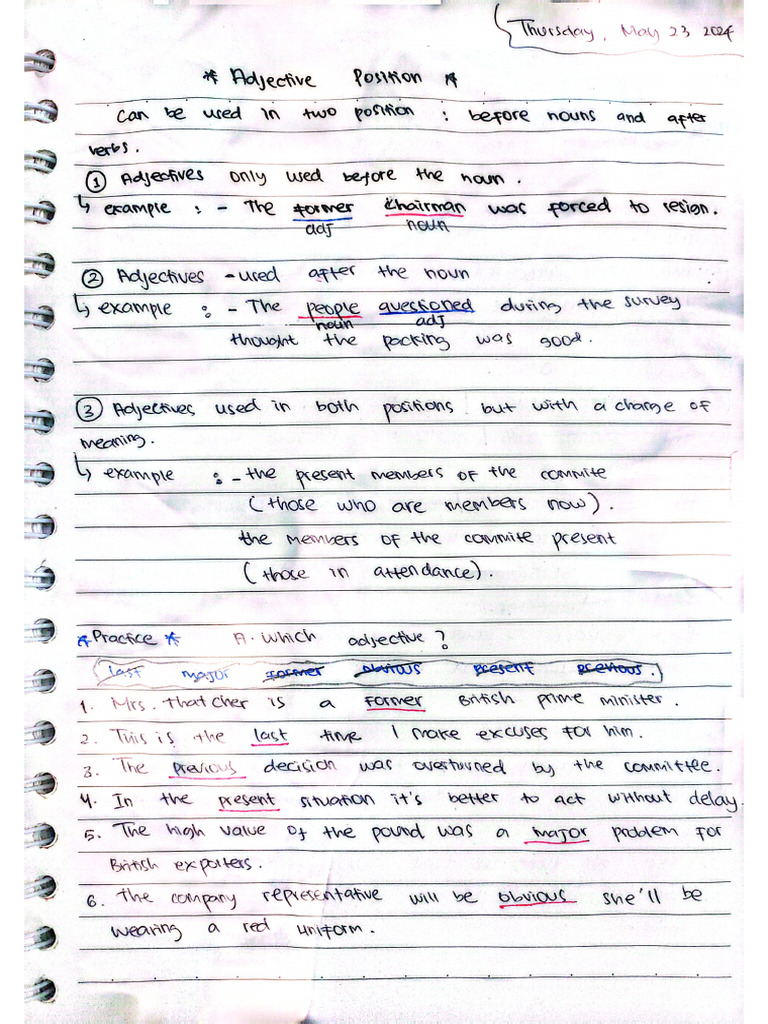 Thursday, May 23 2024
* Adjective Position *
Can be used in two position : before nouns and after
verbs.
① Adjectives only used before the noun.
↳ example : - The former chairman was forced to resign.
adj noun
② Adjectives - used after the noun
↳ example : - The people questioned during the survey
noun adj
thought the packing was good.
③ Adjectives used in both positions but with a change of
meaning.
↳ example : - the present members of the commite
(those who are members now).
the members of the commite present
(those in attendance).
*Practice* A. which adjective?
last major former obvious present previous.
1. Mrs. thatcher is a former British prime minister.
2. This is the last time I make excuses for him.
3. The previous decision was overturned by the committee.
4. In the present situation it's better to act without delay.
5. The high value of the pound was a major problem for
British exporters.
6. the company representative will be obvious she'll be
wearing a red uniform.